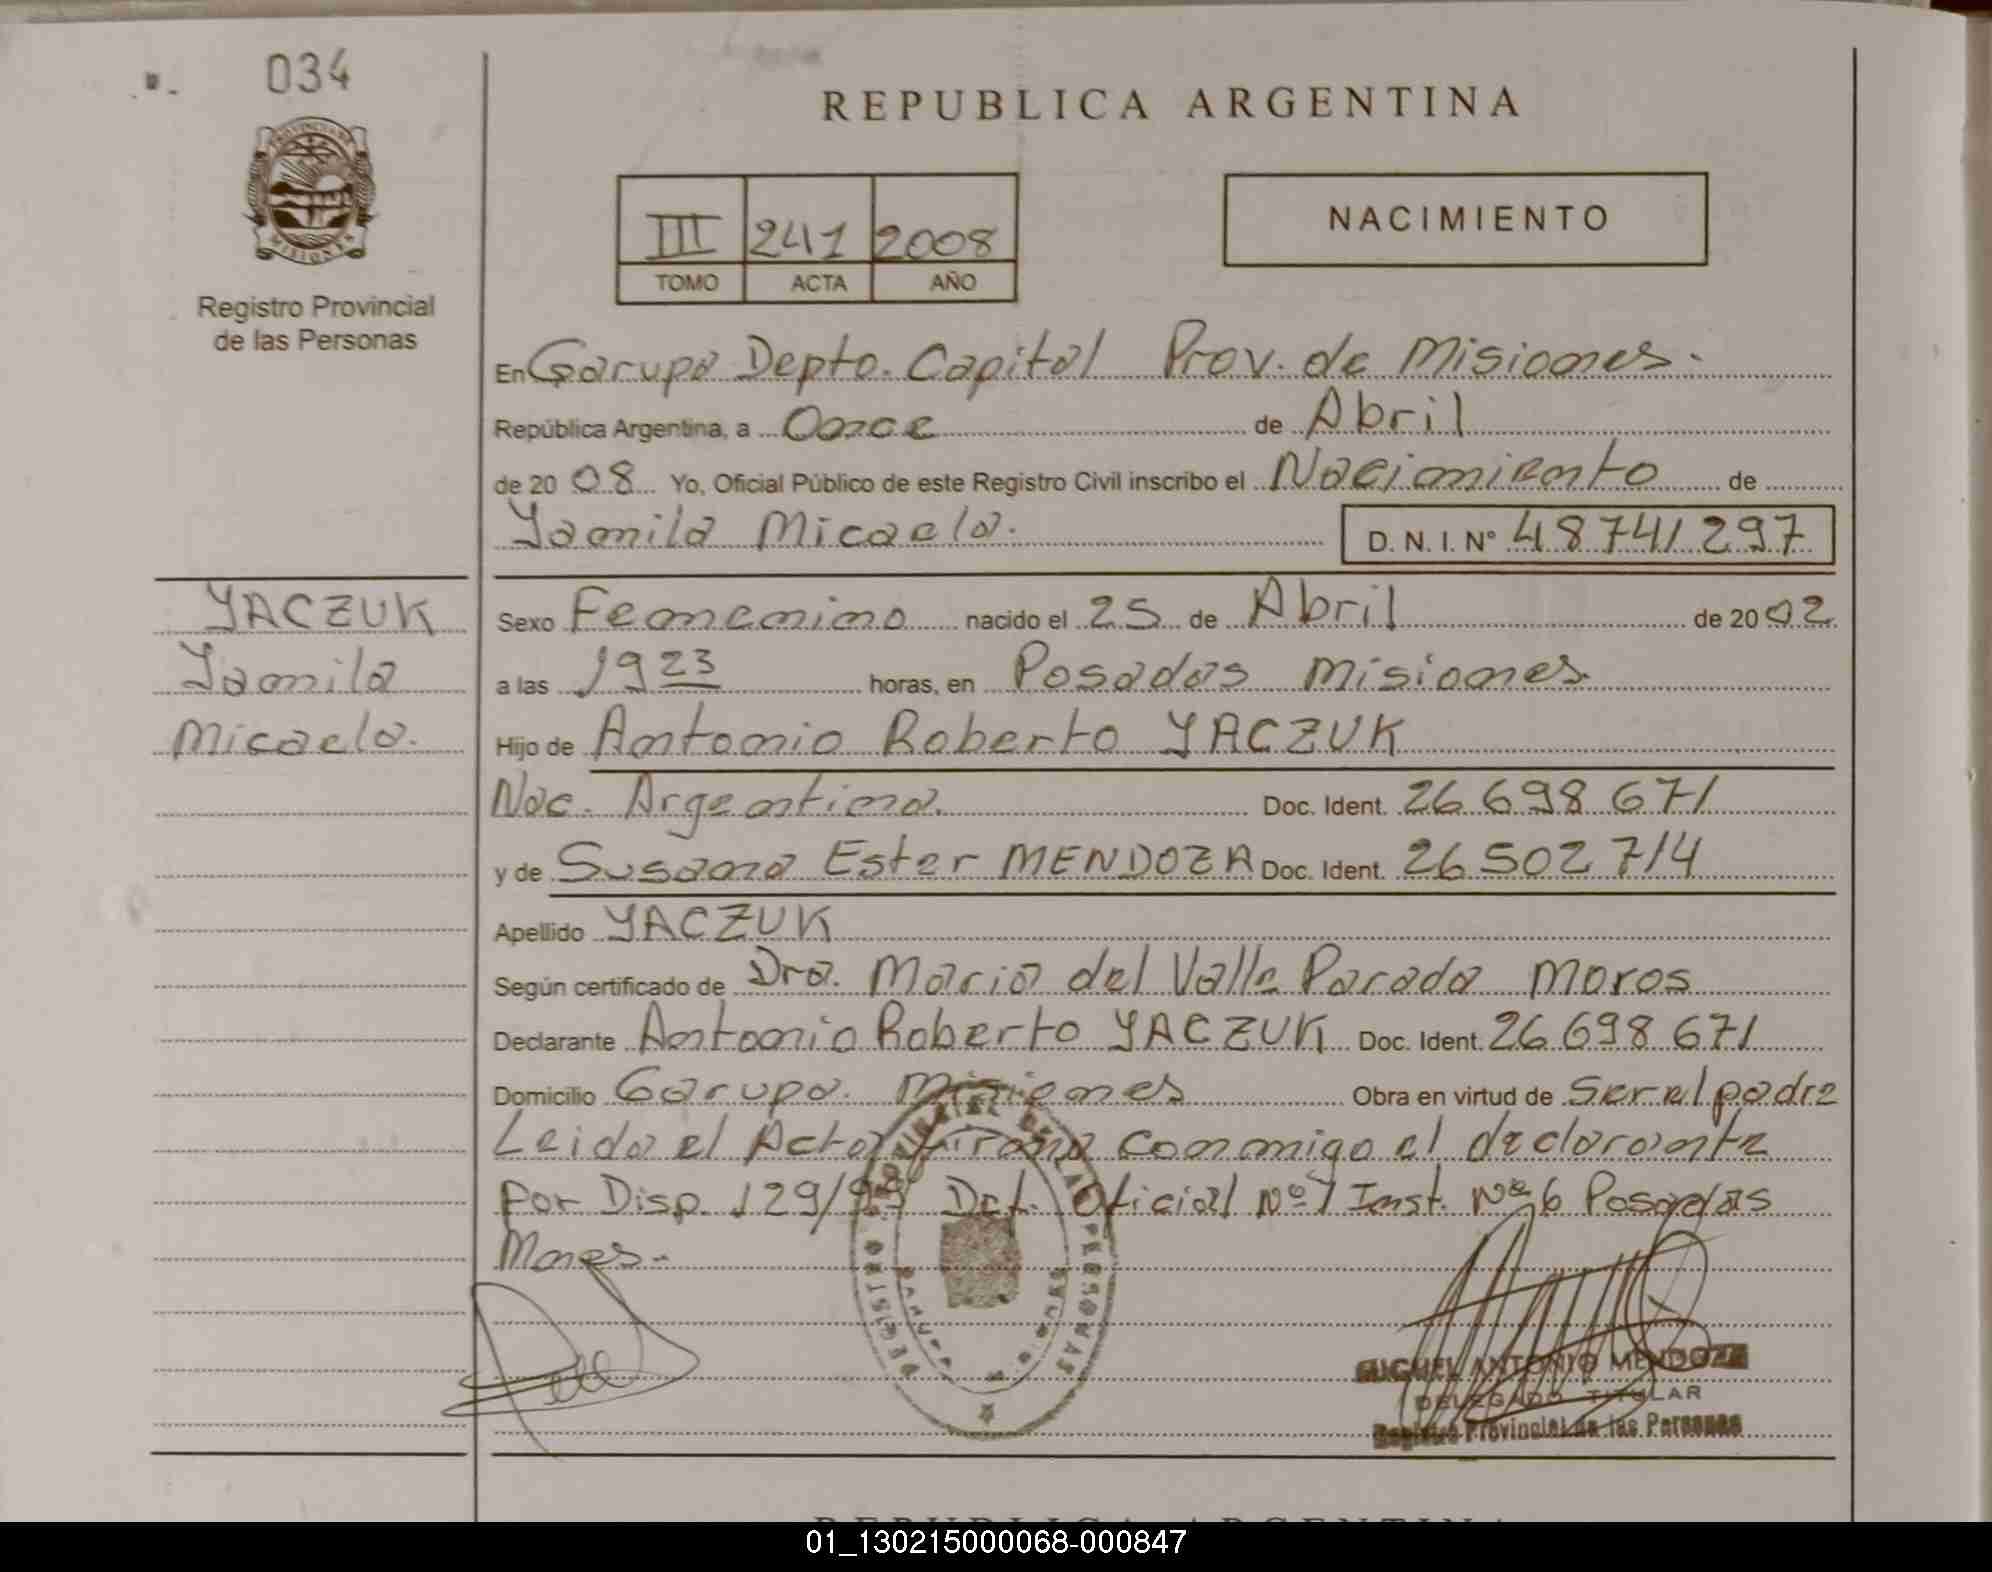 034
PROVINCIA DE
MISIONES
Registro Provincial
de las Personas
REPUBLICA ARGENTINA
III 241 2008
TOMO ACTA AÑO
NACIMIENTO
En Garupa Depto. Capital Prov. de Misiones.
República Argentina, a Once de Abril
de 20 08 Yo, Oficial Público de este Registro Civil inscribo el Nacimiento de
Yamila Micaela. D. N. I. N° 48741297
YACZUK
Yamila
Micaela.
Sexo Femenino nacido el 25 de Abril de 20 02
a las 19 23 horas, en Posadas Misiones.
Hijo de Antonio Roberto YACZUK
Nac. Argentina. Doc. Ident. 26 698 671
y de Susana Ester MENDOZA Doc. Ident. 26 502 714
Apellido YACZUK
Según certificado de Dra. Maria del Valle Parada Moros
Declarante Antonio Roberto YACZUK Doc. Ident. 26 698 671
Domicilio Garupa. Misiones Obra en virtud de Ser el padre
Leida el Acta firma conmigo el declarante
por Disp. 129/ Oficial Nº 1 Inst. Nº 6 Posadas
Mnes.-
REGISTRO PROVINCIAL DE LAS PERSONAS
MIGUEL ANTONIO MENDOZA
DELEGADO TITULAR
Registro Provincial de las Personas
REPUBLICA ARGENTINA
01_130215000068-000847